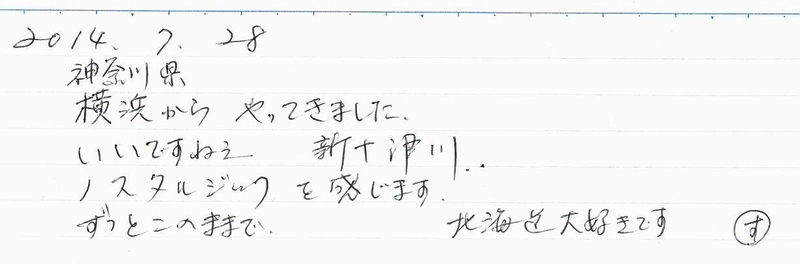 2014. 7. 28
神奈川県
横浜から やってきました.
いいですねえ 新十津川..
ノスタルジックを感じます.
ずっとこのままで. 北海道大好きです す